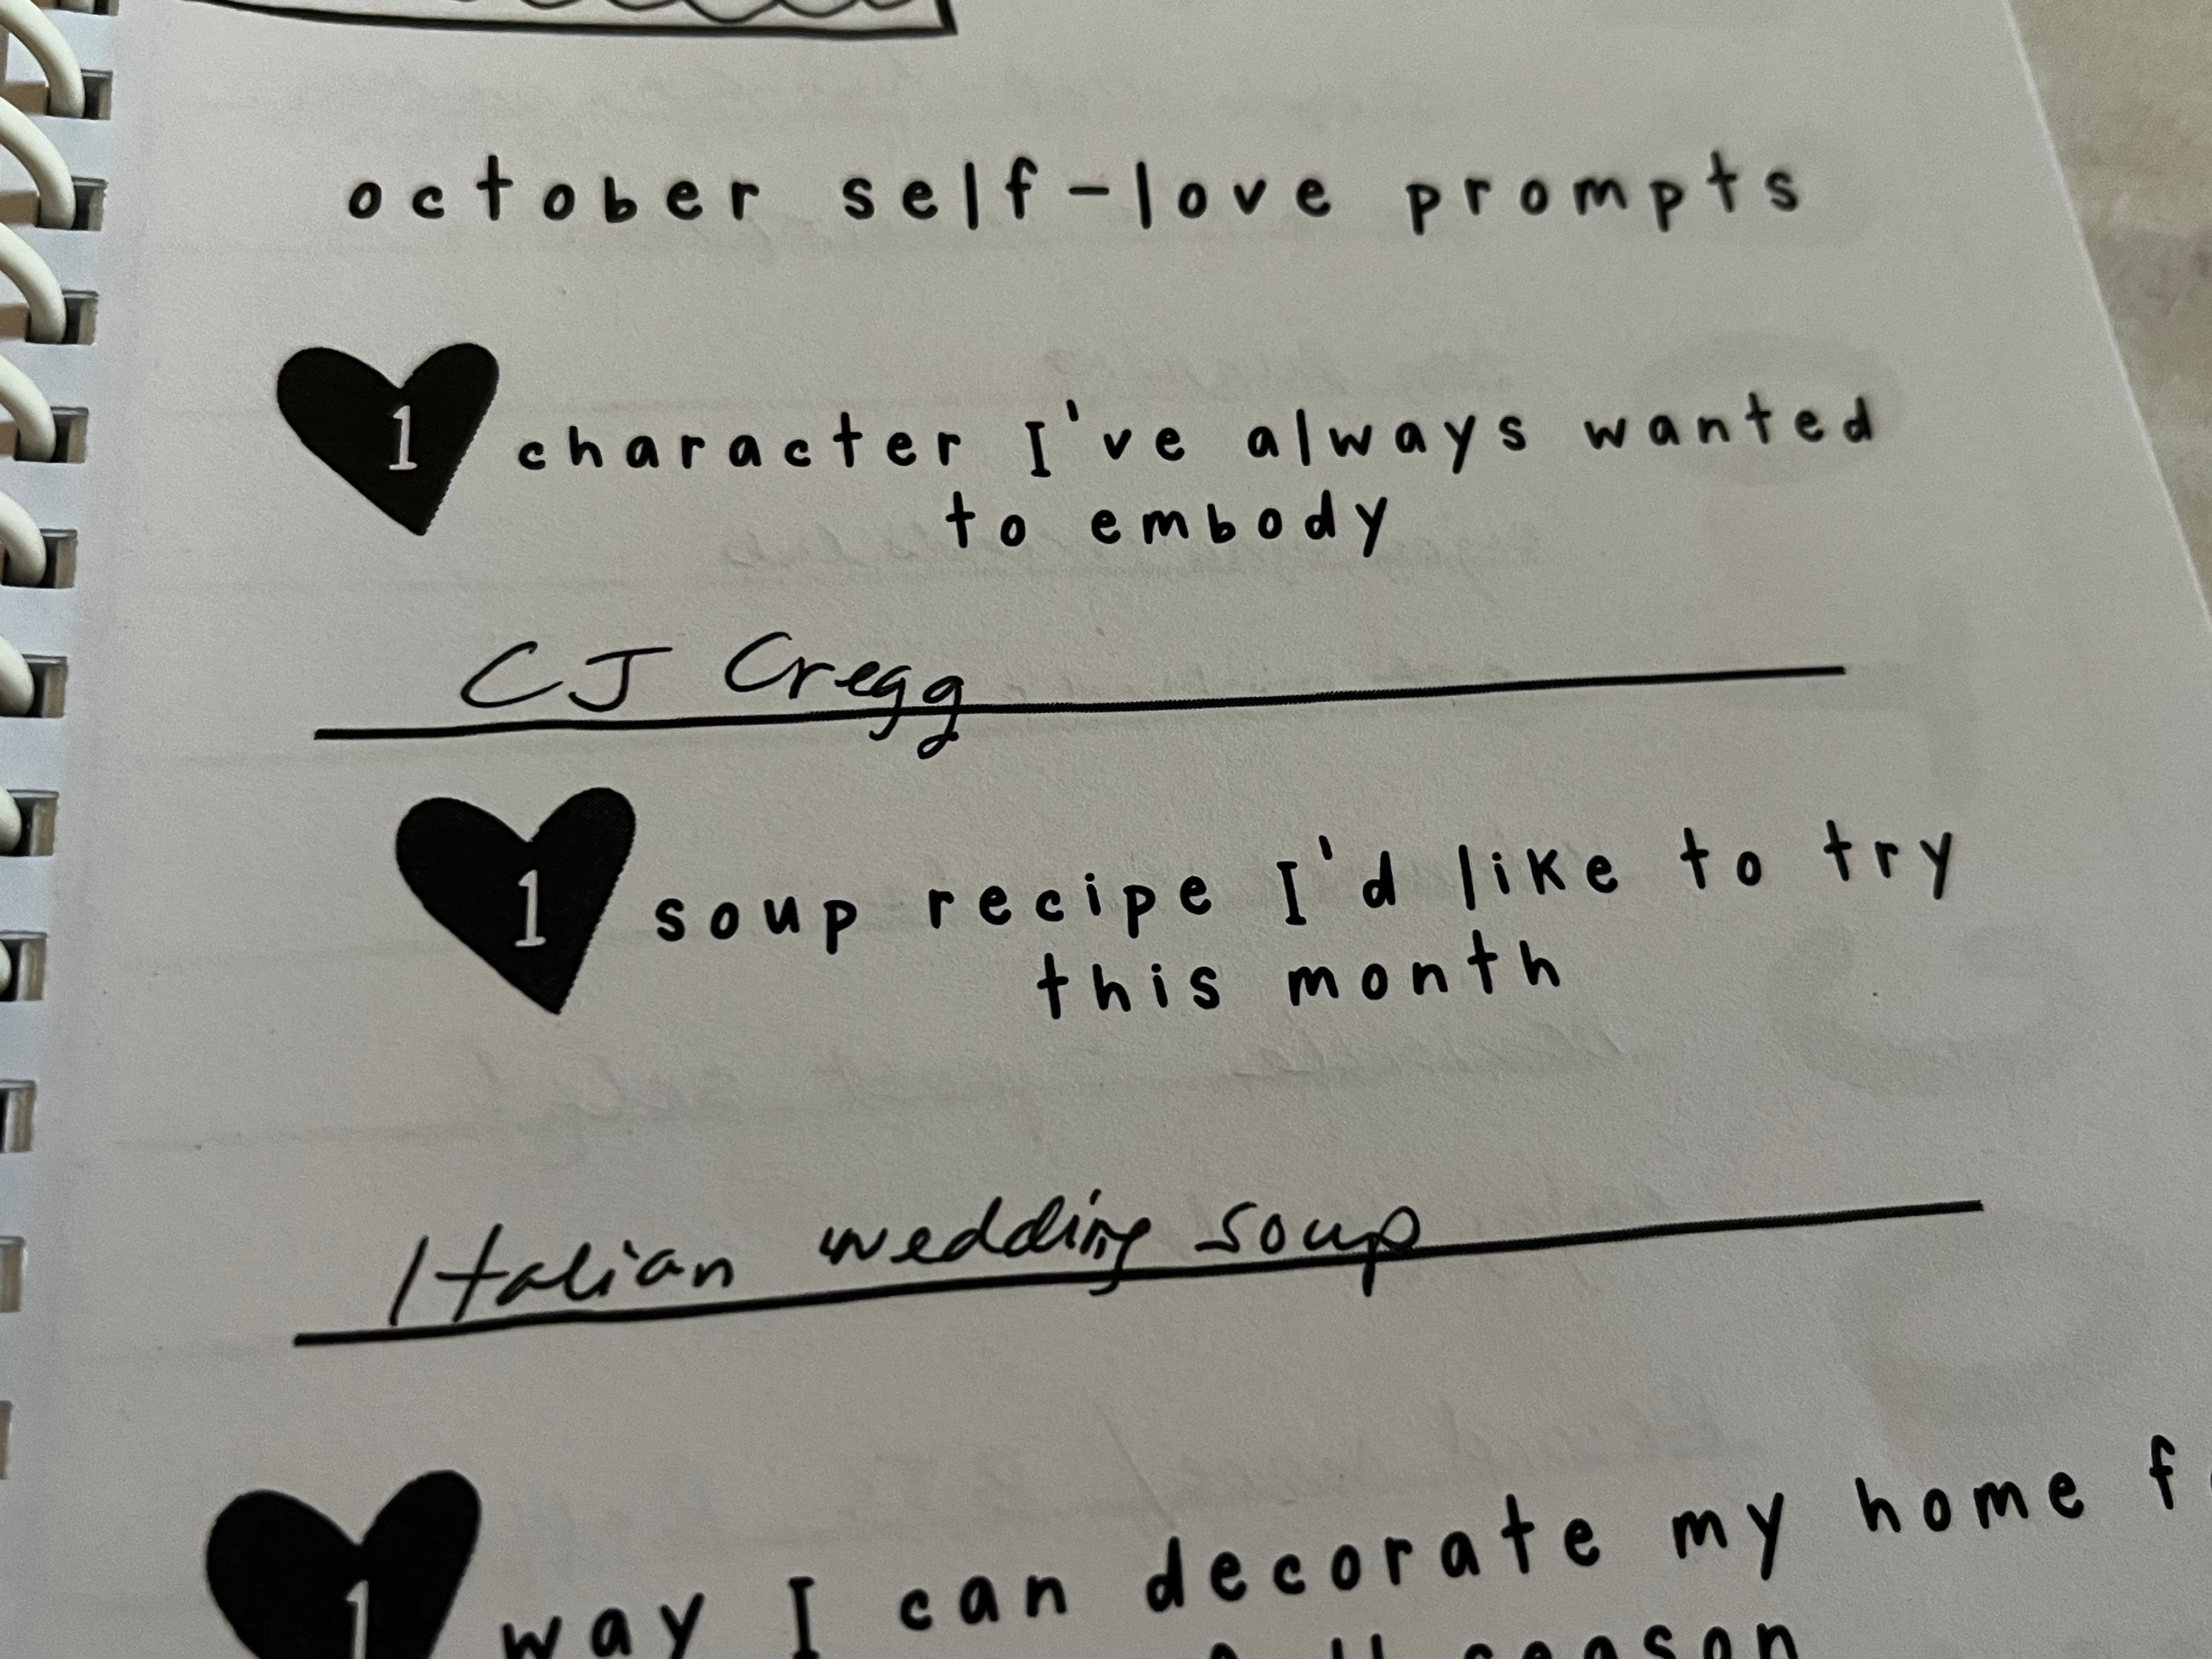 october self-love prompts
1 character I've always wanted
to embody
CJ Cregg
1 soup recipe I'd like to try
this month
Italian wedding soup
1 way I can decorate my home
season